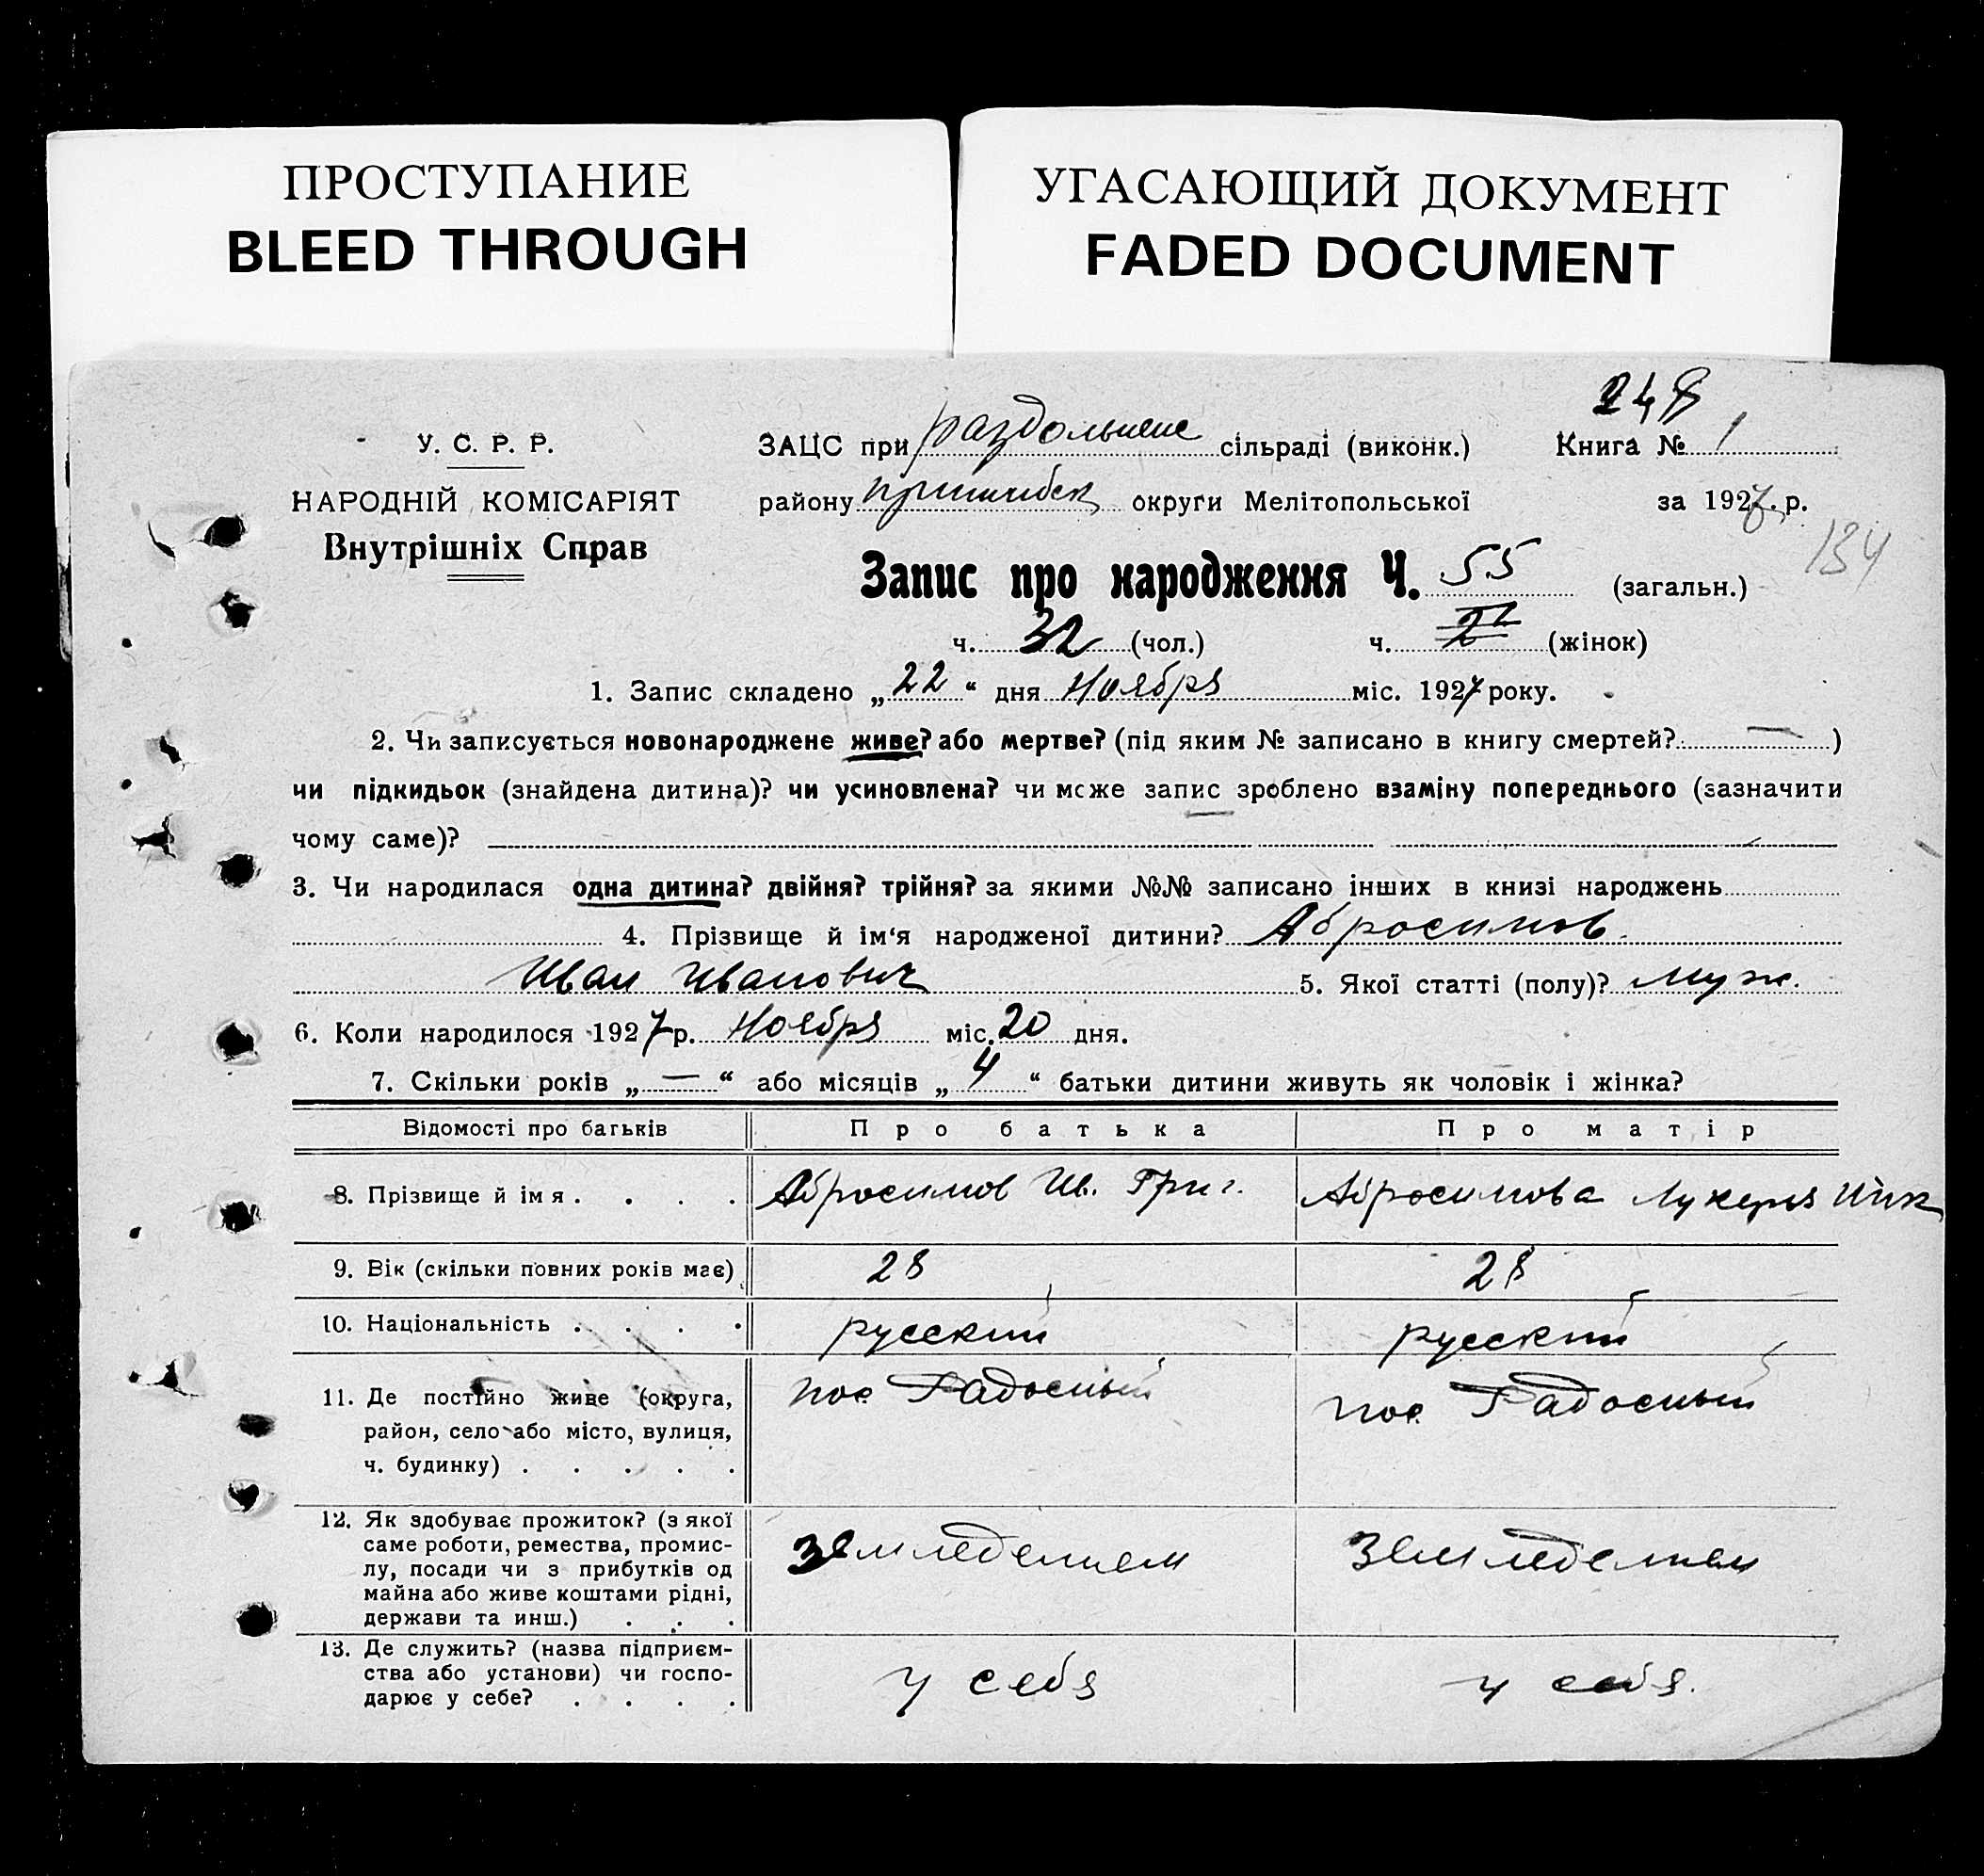 ПРОСТУПАНИЕ
BLEED THROUGH
УГАСАЮЩИЙ ДОКУМЕНТ
FADED DOCUMENT
248
У. С. Р. Р.
НАРОДНІЙ КОМІСАРІЯТ
Внутрішніх Справ
ЗАЦС при сільраді (виконк.) Книга № 1
району округи Мелітопольської за 1927 р.
134
Запис про народження Ч. 55 (загальн.)
ч. 32 (чол.) ч. (жінок)
1. Запис складено „22“ дня Ноября міс. 1927 року.
2. Чи записується новонароджене живе? або мертве? (під яким № записано в книгу смертей? — )
чи підкидьок (знайдена дитина)? чи усиновлена? чи може запис зроблено взаміну попереднього (зазначити
чому саме)?
3. Чи народилася одна дитина? двійня? трійня? за якими №№ записано інших в книзі народжень
4. Прізвище й ім‘я народженої дитини? Абросимов
Иван Иванович 5. Якої статті (полу)? муж.
6. Коли народилося 1927 р. Ноября міс. 20 дня.
7. Скільки років „—“ або місяців „4“ батьки дитини живуть як чоловік і жінка?
Відомості про батьків Про батька Про матір
8. Прізвище й імя . . . . Абросимов Ив. Григ. Абросимова Лукерья Ник
9. Вік (скільки повних років має) 28 28
10. Національність . . . . русский русский
11. Де постійно живе (округа,
район, село або місто, вулиця,
ч. будинку) . . . . .
пос. Радосный пос. Радосный
12. Як здобуває прожиток? (з якої
саме роботи, ремества, промис-
лу, посади чи з прибутків од
майна або живе коштами рідні,
держави та инш.) . . .
Земледелием Земледелием
13. Де служить? (назва підприєм-
ства або установи) чи госпо-
дарює у себе? . . . .
у себя у себя.